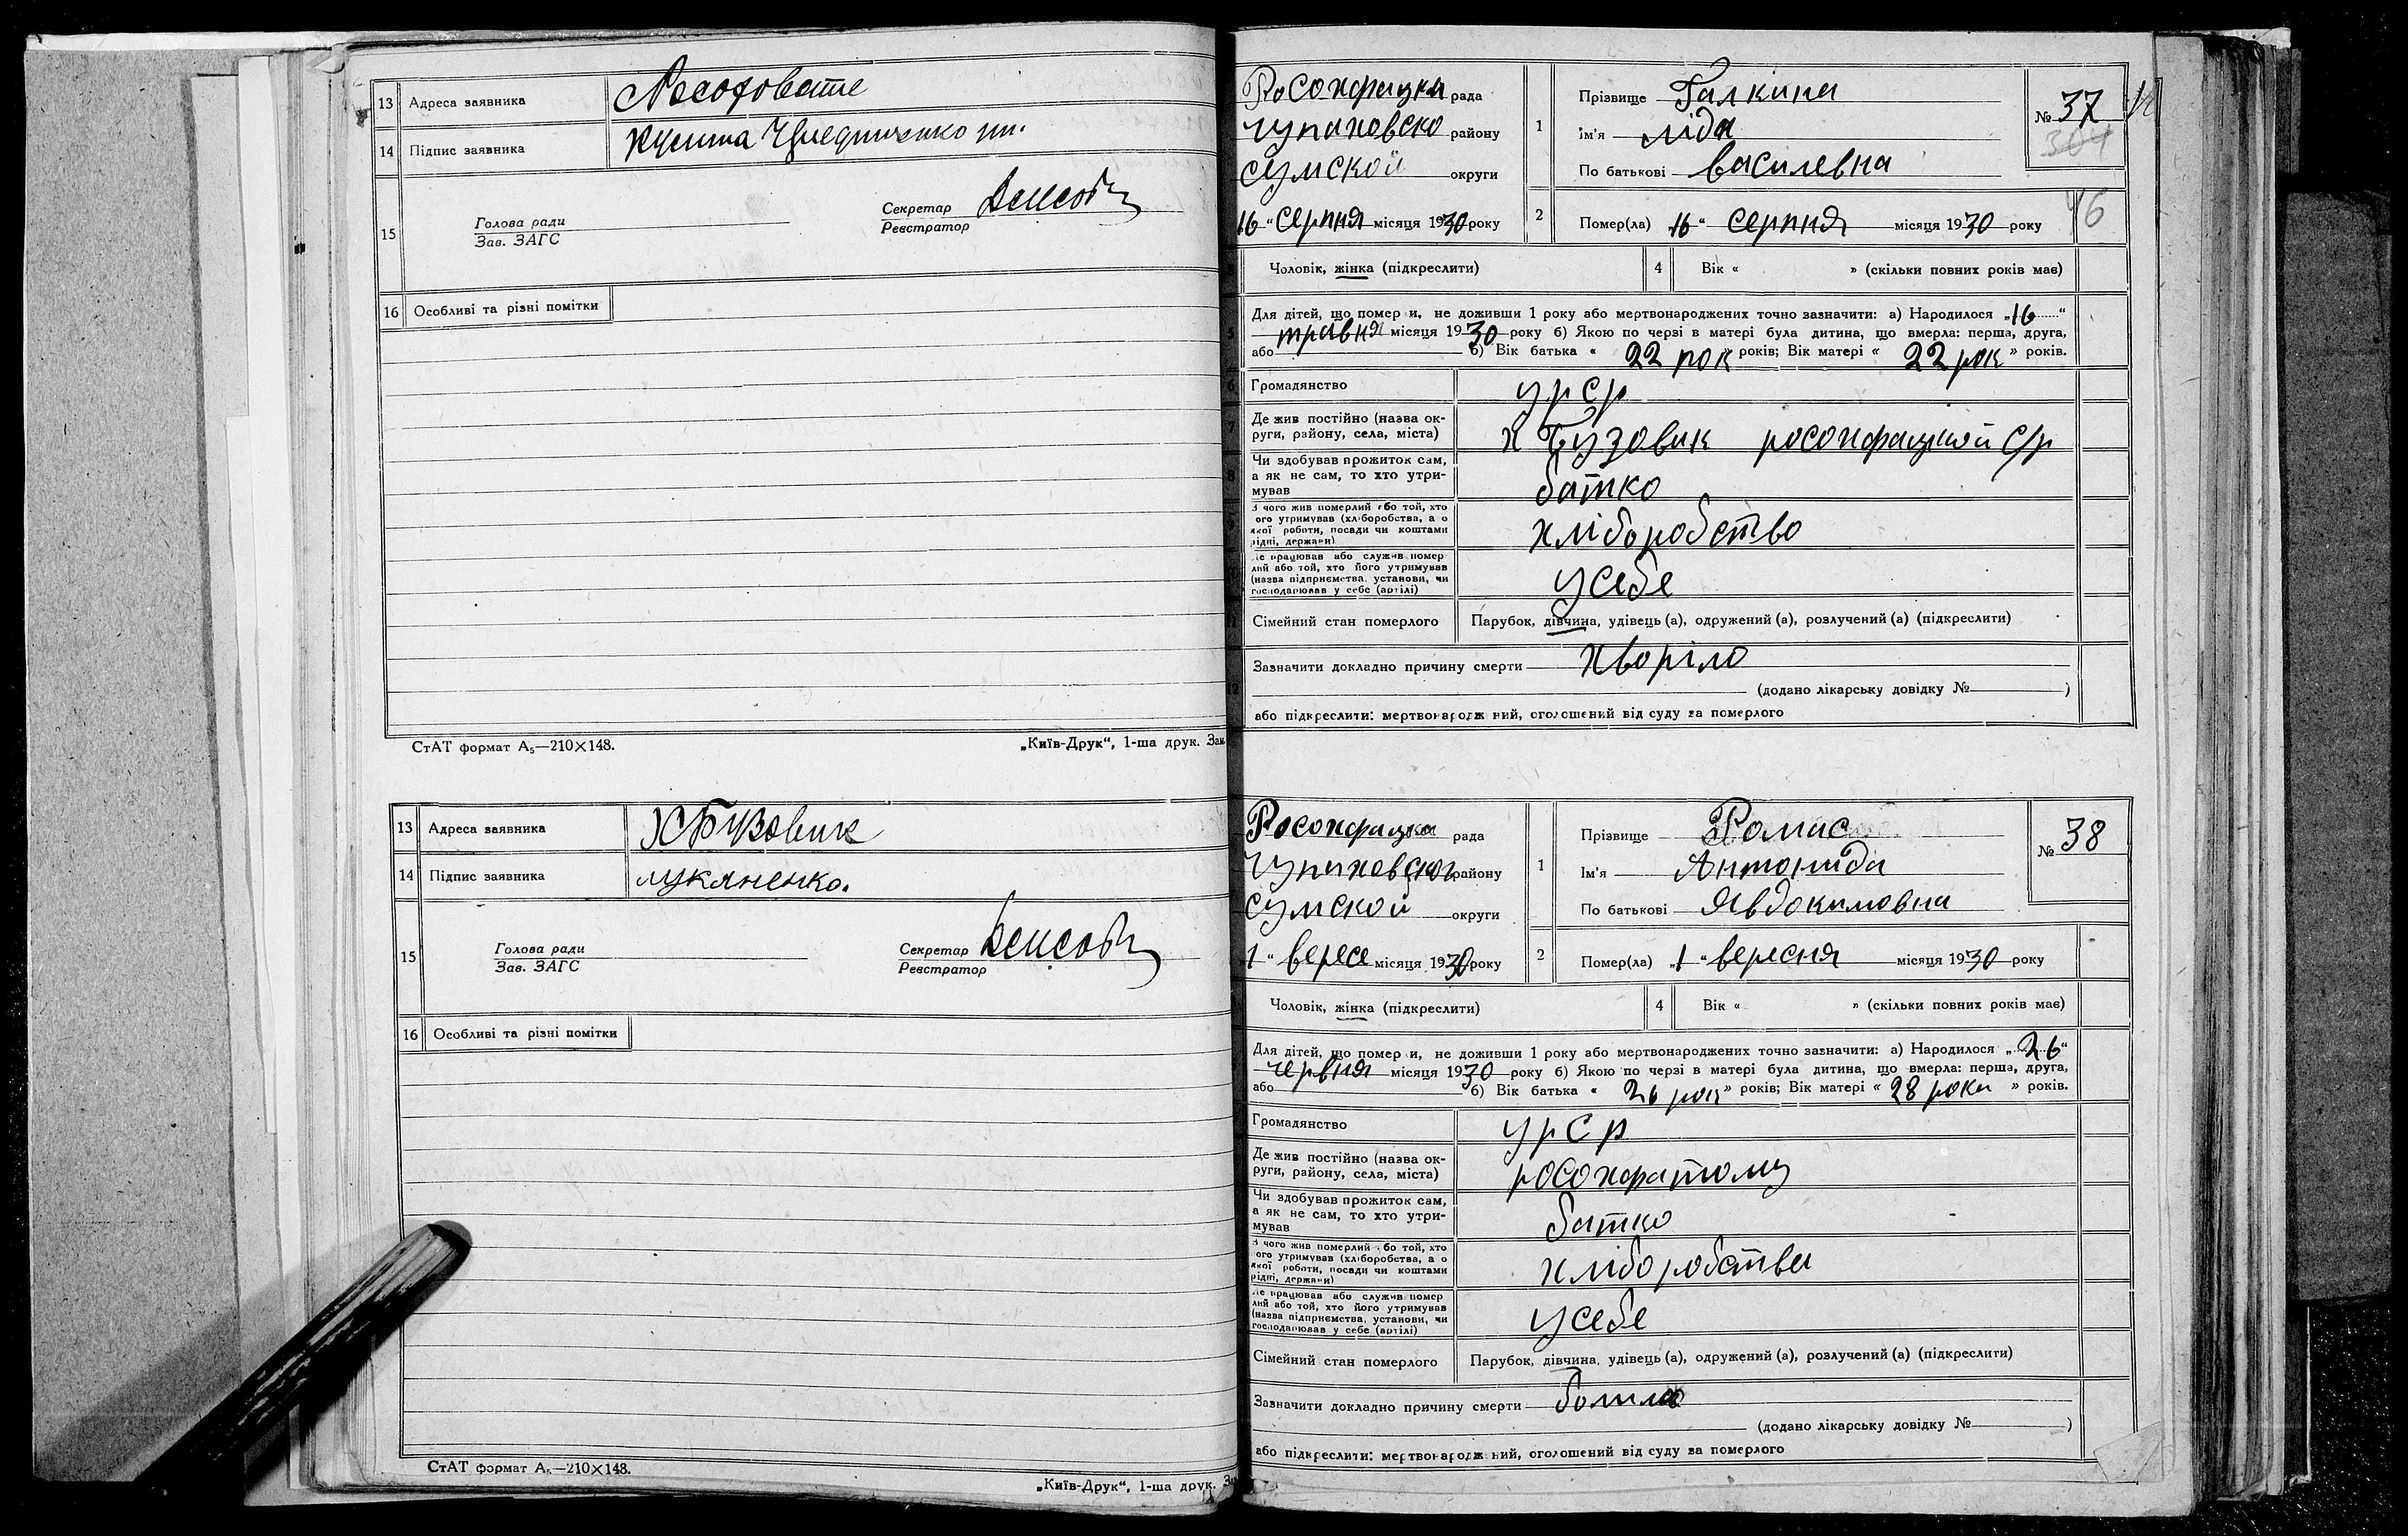 13 Адреса заявника
14 Підпис заявника
15 Голова ради
Зав. ЗАГС
Секретар
Реєстратор
16 Особливі та різні помітки
СтАТ формат А5—210×148.
„Київ-Друк“, 1-ша друк. Зам
13 Адреса заявника Х Бузовик
14 Підпис заявника Лукяненко.
15 Голова ради
Зав. ЗАГС
Секретар
Реєстратор
16 Особливі та різні помітки
СтАТ формат А5—210×148.
„Київ-Друк“, 1-ша друк. За
рада
району
Сумской округи
„16“ Серпня місяця 1930 року
1 Прізвище Галкина
Ім'я Ліда
По батькові Василевна
№ 37
304
46
2 Помер(ла) „16“ серпня місяця 1930 року
Чоловік, жінка (підкреслити)
4 Вік « » (скільки повних років має)
Для дітей, що помер и, не доживши 1 року або мертвонароджених точно зазначити: а) Народилося „16“
травня місяця 1930 року б) Якою по черзі в матері була дитина, що вмерла: перша, друга,
або б) Вік батька « 22 рок років; Вік матері « 22 рок » років.
6 Громадянство урср
7 Де жив постійно (назва ок-
руги, району, села, міста) х Бузовик с/р
8 Чи здобував прожиток сам,
а як не сам, то хто утри-
мував батко
9 З чого жив померлий або той, хто
ого утримував (хліборобства, а о
якої роботи, посади чи коштами
рідні, держави) хліборобство
10 Де працював або служив помер
лий або той, хто його утримував
(назва підприємства, установи, чи
господарював у себе (артілі) усебе
11 Сімейний стан померлого Парубок, дівчина, удівець (а), одружений (а), розлучений (а) (підкреслити)
12 Зазначити докладно причину смерти хворіло
(додано лікарську довідку № )
або підкреслити: мертвонародж ний, оголошений від суду за померлого
рада
району
Сумской округи
„1“ вересе місяця 1930 року
1 Прізвище Ромас
Ім'я Антонида
По батькові Явдокимовна
№ 38
2 Помер(ла) „1“ вересня місяця 1930 року
Чоловік, жінка (підкреслити)
4 Вік « » (скільки повних років має)
Для дітей, що помер и, не доживши 1 року або мертвонароджених точно зазначити: а) Народилося „26“
червня місяця 1930 року б) Якою по черзі в матері була дитина, що вмерла: перша, друга,
або б) Вік батька « 26 рок » років; Вік матері « 28 роки » років.
Громадянство урср
Де жив постійно (назва ок-
руги, району, села, міста)
Чи здобував прожиток сам,
а як не сам, то хто утри-
мував батко
З чого жив померлий або той, хто
ого утримував (хліборобства, а о
якої роботи, посади чи коштами
рідні, держави) хліборобства
Де працював або служив помер
лий або той, хто його утримував
(назва підприємства, установи, чи
господарював у себе (артілі) усебе
Сімейний стан померлого Парубок, дівчина, удівець (а), одружений (а), розлучений (а) (підкреслити)
Зазначити докладно причину смерти
(додано лікарську довідку № )
або підкреслити: мертвонародж ний, оголошений від суду за померлого